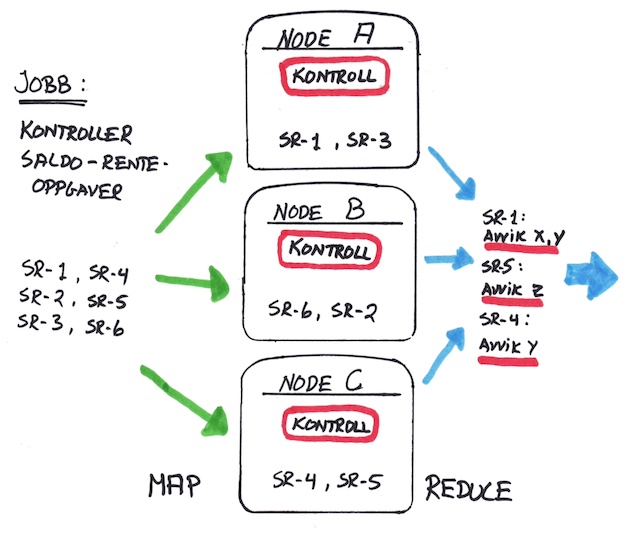 JOBB:
KONTROLLER
SALDO-RENTE-
OPPGAVER
SR-1, SR-4
SR-2, SR-5
SR-3, SR-6
MAP
NODE A
KONTROLL
SR-1, SR-3
NODE B
KONTROLL
SR-6, SR-2
NODE C
KONTROLL
SR-4, SR-5
REDUCE
SR-1:
AVVIK X,Y
SR-5:
AVVIK Z
SR-4:
AVVIK Y